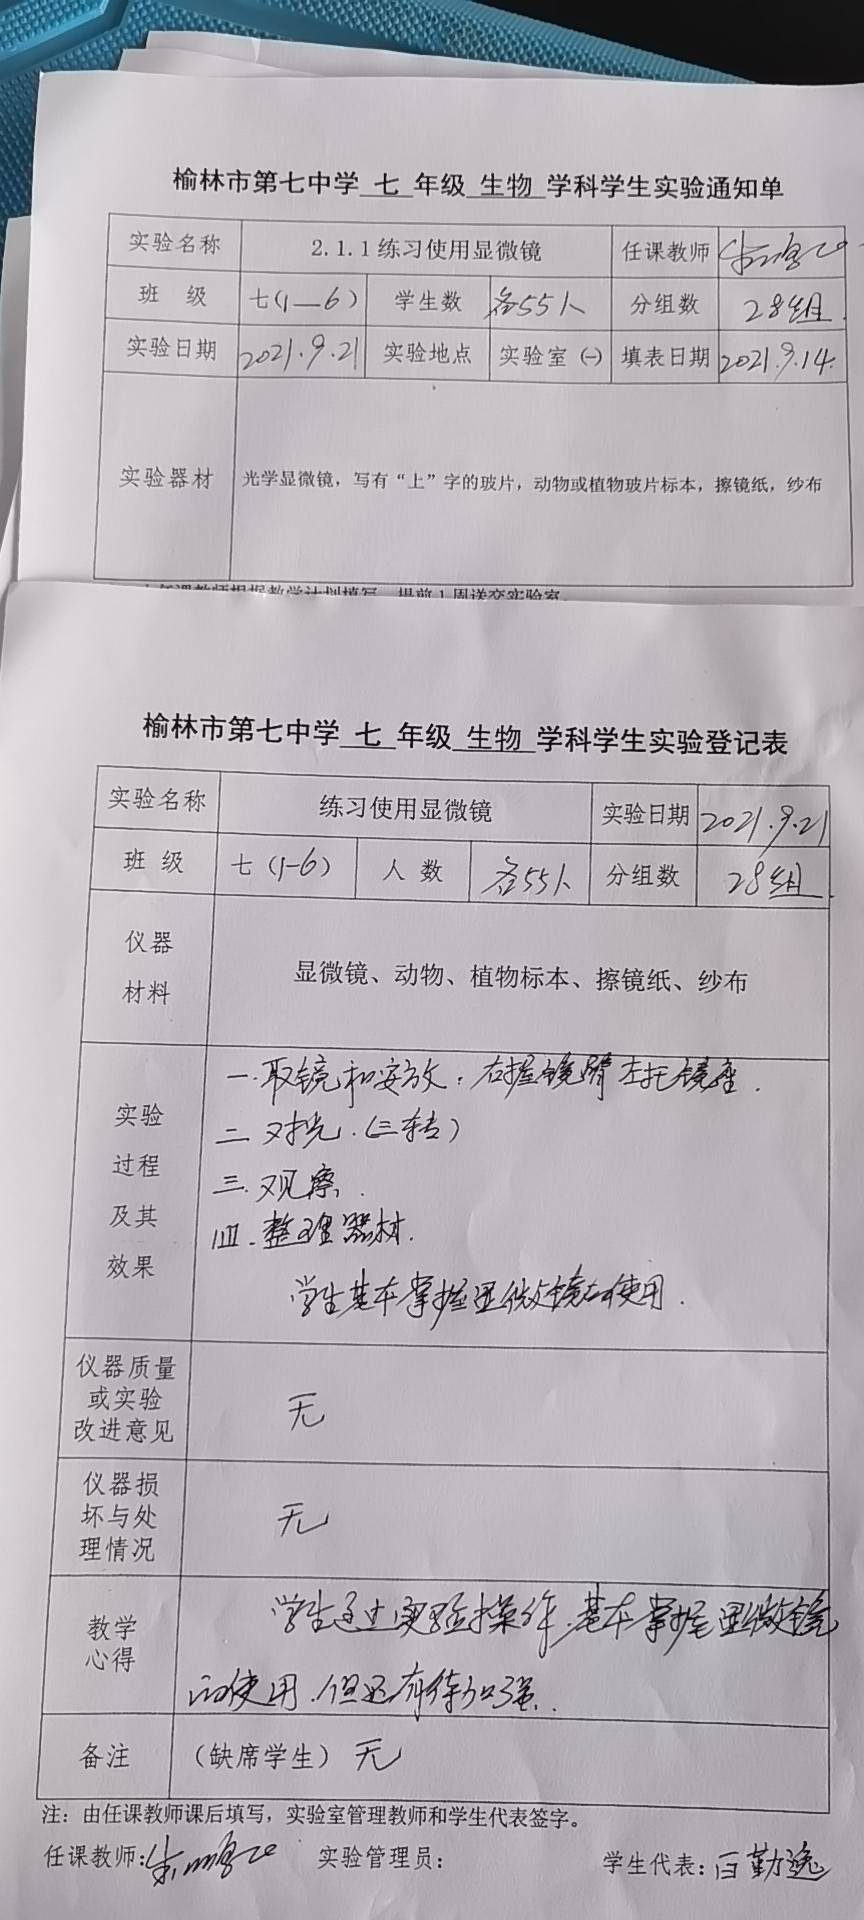 榆林市第七中学 七 年级 生物 学科学生实验通知单
实验名称 2.1.1 练习使用显微镜 任课教师
班 级 七(1—6) 学生数 各55人 分组数 28组.
实验日期 2021.9.21 实验地点 实验室 (一) 填表日期 2021.9.14.
实验器材 光学显微镜，写有“上”字的玻片，动物或植物玻片标本，擦镜纸，纱布
任课教师根据教学计划填写，提前1周送交实验室。
榆林市第七中学 七 年级 生物 学科学生实验登记表
实验名称 练习使用显微镜 实验日期 2021.9.21
班 级 七 (1-6) 人 数 各55人 分组数 28组.
仪器
材料
显微镜、动物、植物标本、擦镜纸、纱布
实验
过程
及其
效果
一.取镜和安放：右握镜臂左托镜座.
二 对光.(三转)
三.观察.
四.整理器材.
学生基本掌握显微镜的使用.
仪器质量
或实验
改进意见
无
仪器损
坏与处
理情况
无
教学
心得
学生通过实验操作.基本掌握显微镜
的使用.但还有待加强.
备注 （缺席学生）无
注：由任课教师课后填写，实验室管理教师和学生代表签字。
任课教师: 实验管理员： 学生代表：白勤逸